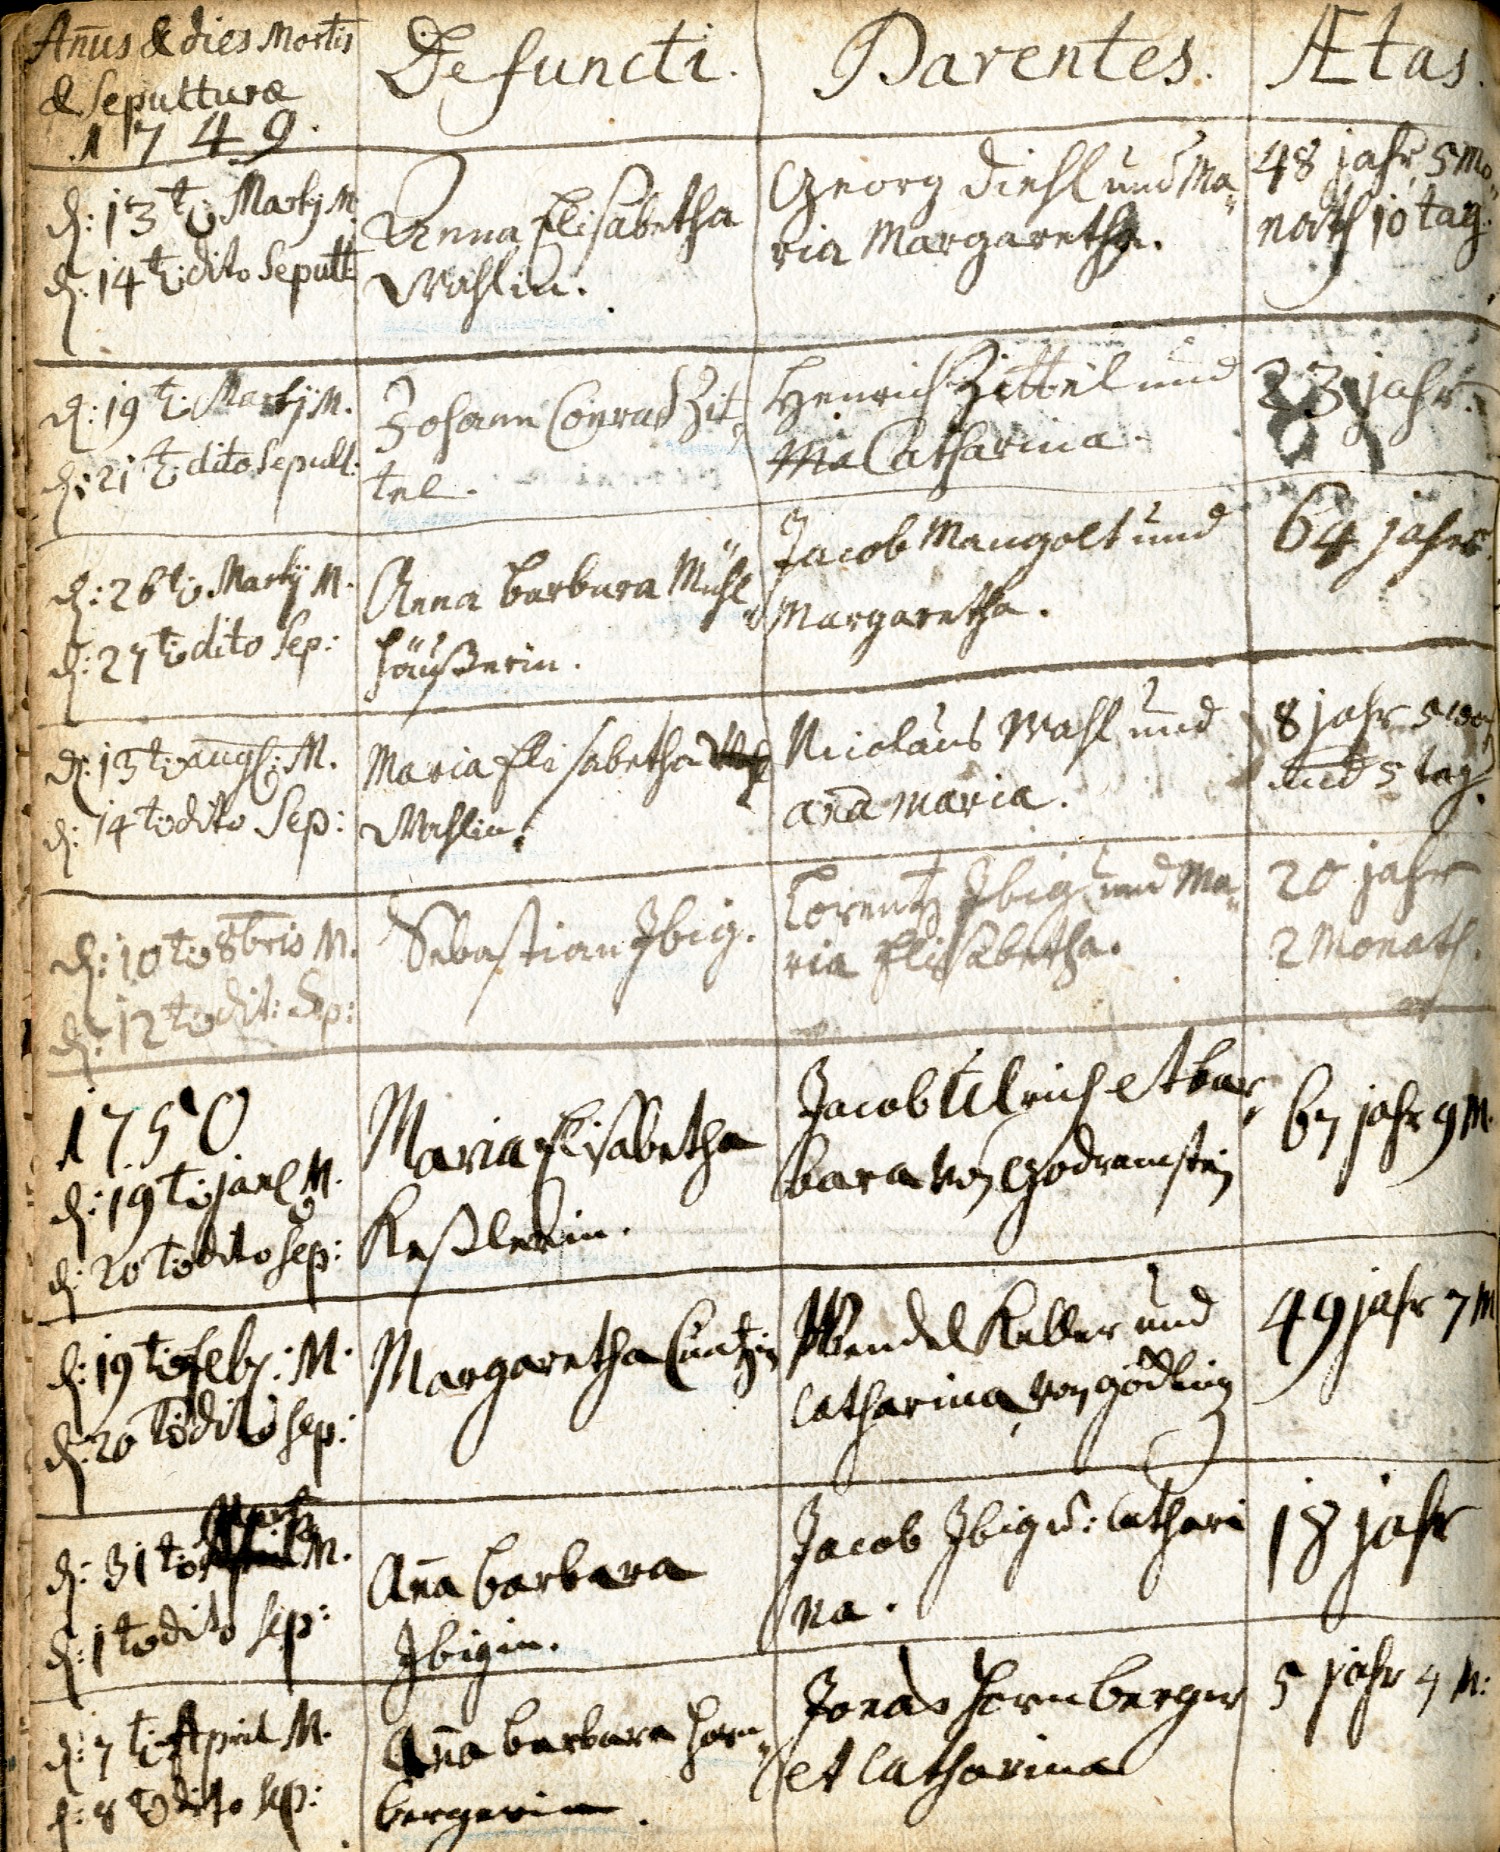 Anus & dies Mortis
& Sepulturæ
1749.
Defuncti.
Parentes.
Ætas.
d: 13t: Martij M.
d: 14t: dito Sepult:
Anna Elisabetha
Wahlin.
Georg Diehl und Ma„
ria Margaretha.
48 jahr, 5 Mo„
nath 10 tag.
d: 19t: Martij M.
d: 21t: dito Sepult:
Johann Conrad Zit„
tel.
Henrich Zittel und
Ma Catharina.
23 jahr.
d: 26t: Martij M.
d: 27t: dito Sep:
Anna Barbara Mühl„
häußerin.
Jacob Mangolt und
Margaretha.
64 jahr.
d: 13t: aug: M.
d: 14t: dito Sep:
Maria Elisabetha
Wahlin.
Nicolaus Wahl und
ana Maria.
8 jahr 5
und 5 tag.
d: 10t: 8bris M.
d: 12t: dit: Sep:
Sebastian Ibig.
Lorentz Ibig und Ma„
ria Elisabetha.
20 jahr
2 Monath.
1750
d: 19t: janl M.
d: 20t: dito Sep:
Maria Elisabetha
Keßlerin.
Jacob Ulrich et bar„
bara von Godramstein
67 jahr 9 M.
d: 19t: feb: M.
d: 20t: dito Sep:
Margaretha Cuntzin
Wendel Keller und
Catharina von gödling
49 jahr 7 M
Martij
d: 31t: M.
d: 1t: dito Sep:
Ana barbara
Ibigin.
Jacob Ibig u: Cathari
na.
18 jahr
d: 7t: April M.
d: 8t: dito Sep:
Ana barbara horn„
bergerin.
Jonas hornberger
et Catharina
5 jahr 4 M: